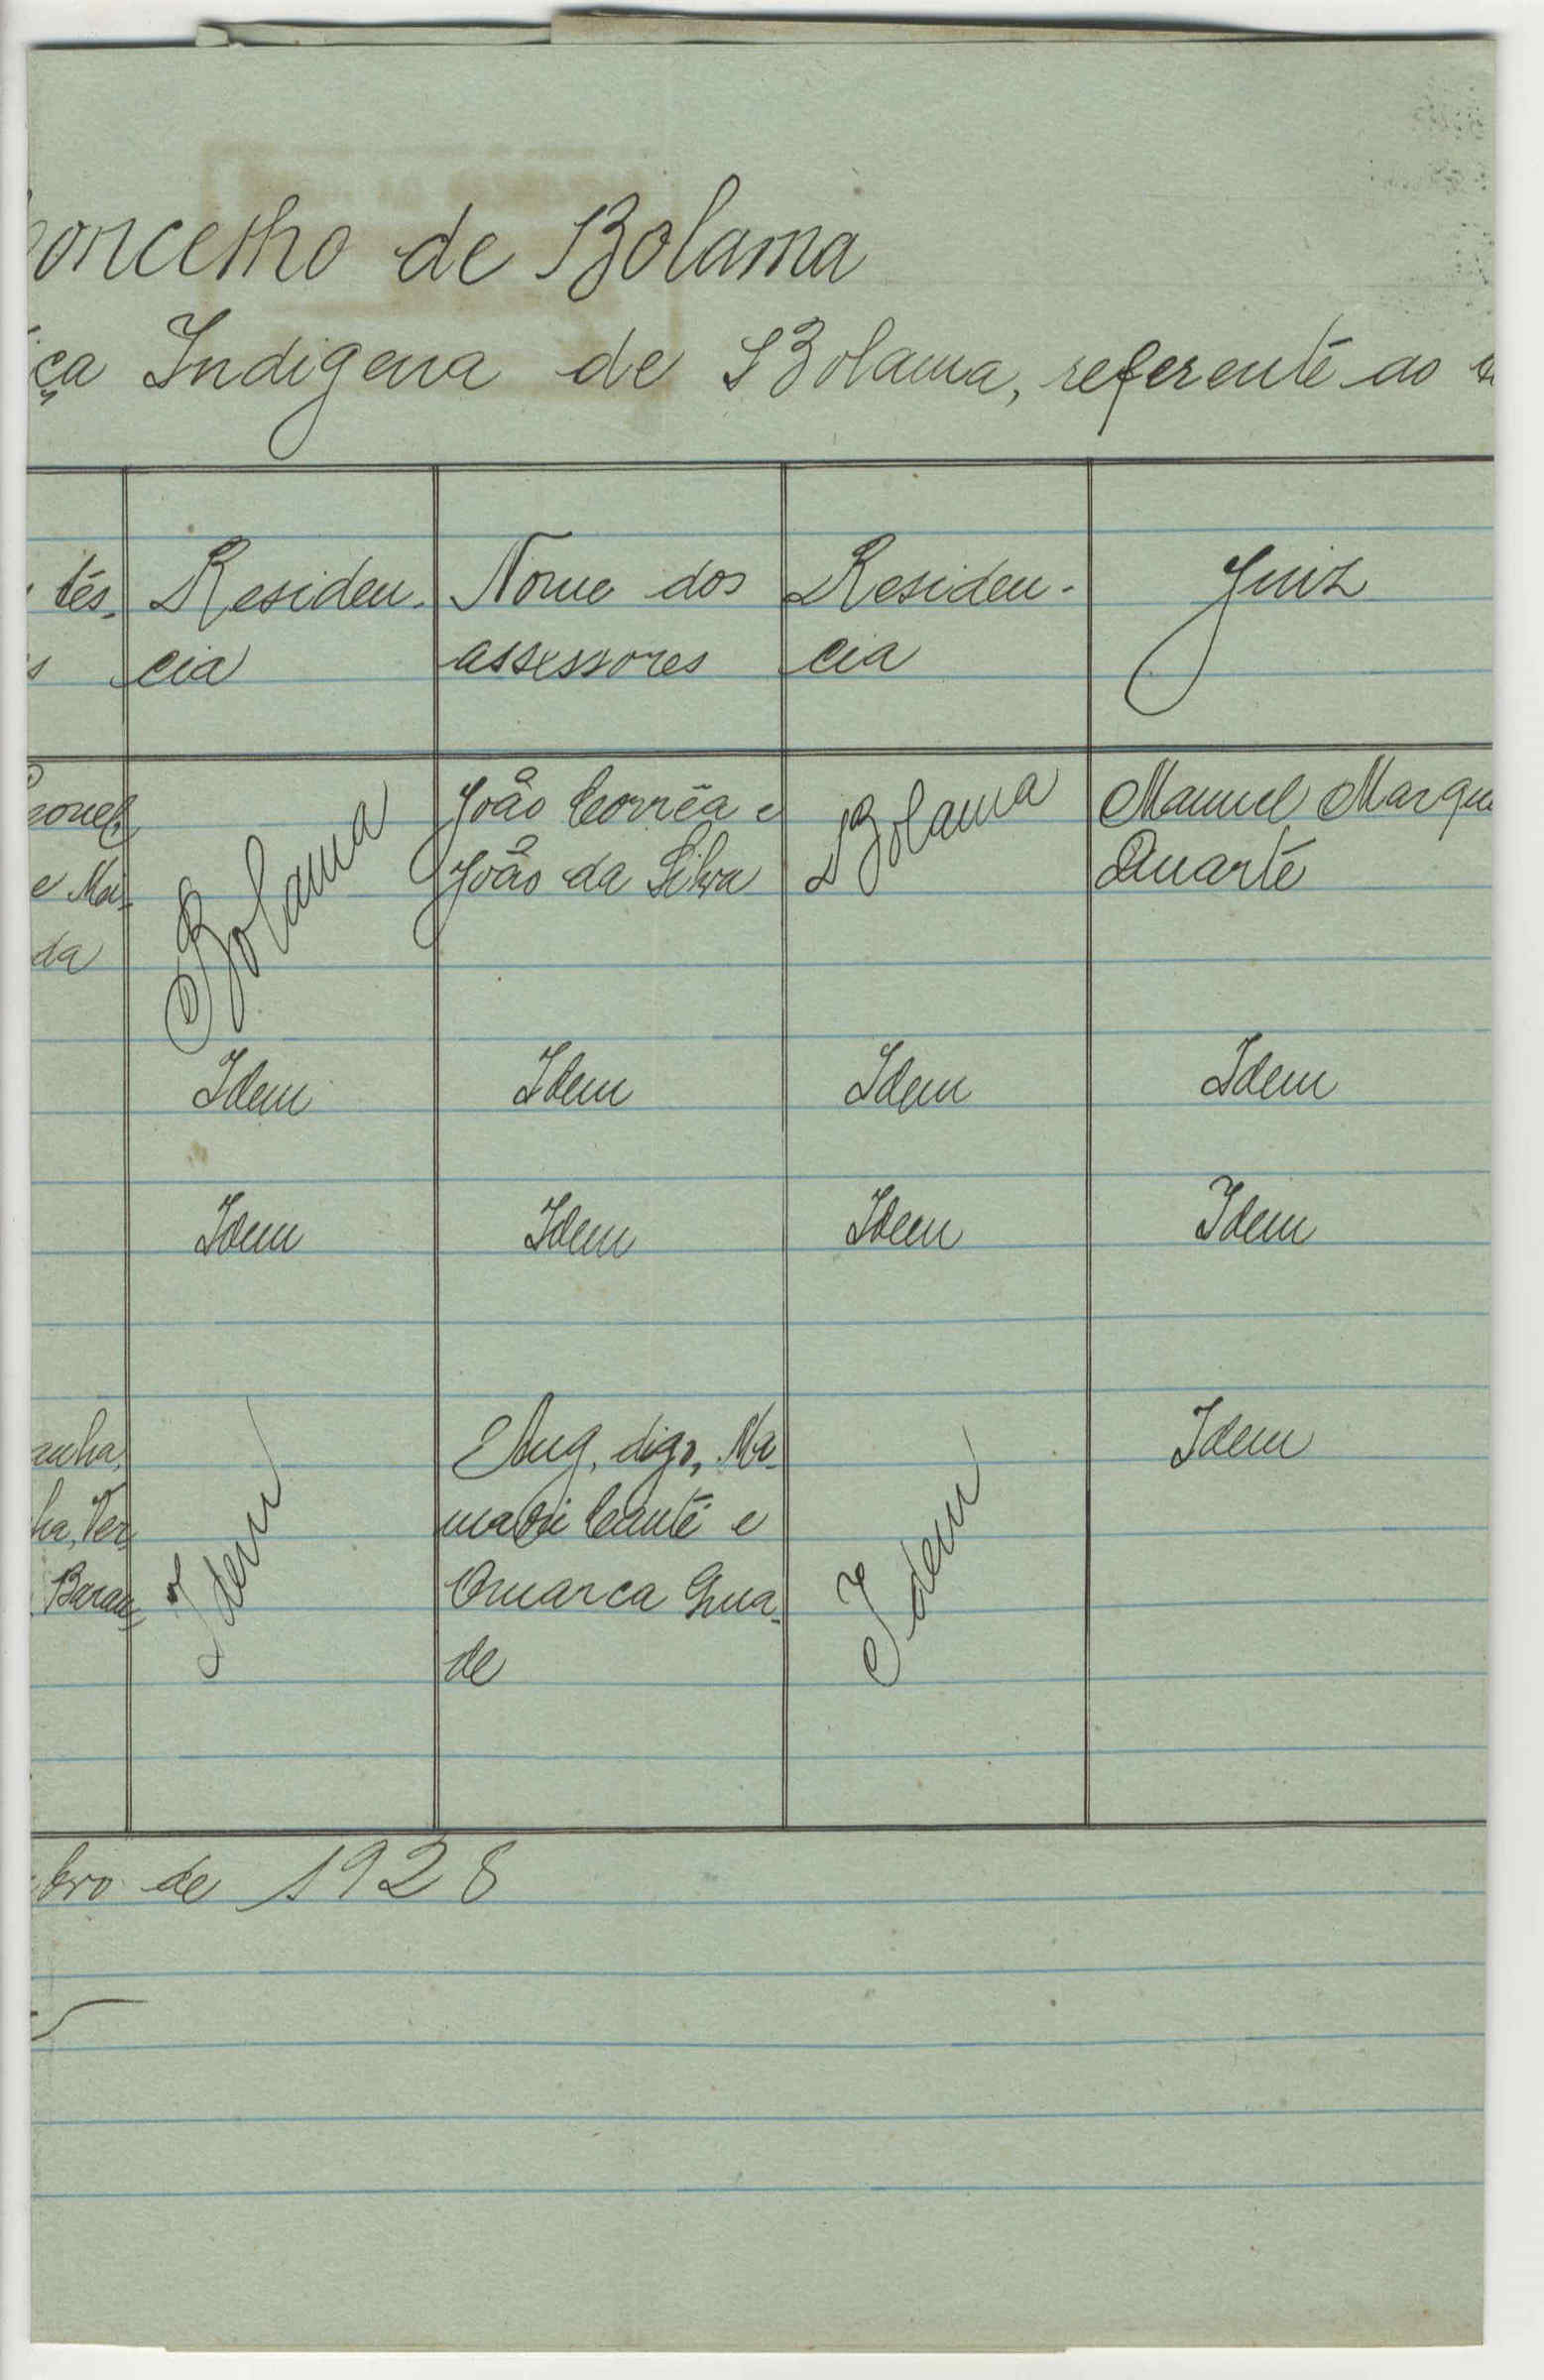 concelho de Bolama
ça Indigena de Bolama, referente ao
tés-
s
Residen-
cia
Nome dos
assessores
Residen-
cia
Juiz
e Ma-
da
Bolama
João Corrêa e
João da Silva
Bolama
Manuel Marqu
Duarte
Idem
Idem
Idem
Idem
Idem
Idem
Idem
Idem
anha,
ha, Ver-
Baran-
Idem
Aug, digo, Ma-
madú Canté e
Omarca Gua-
de
Idem
Idem
bro de 1928